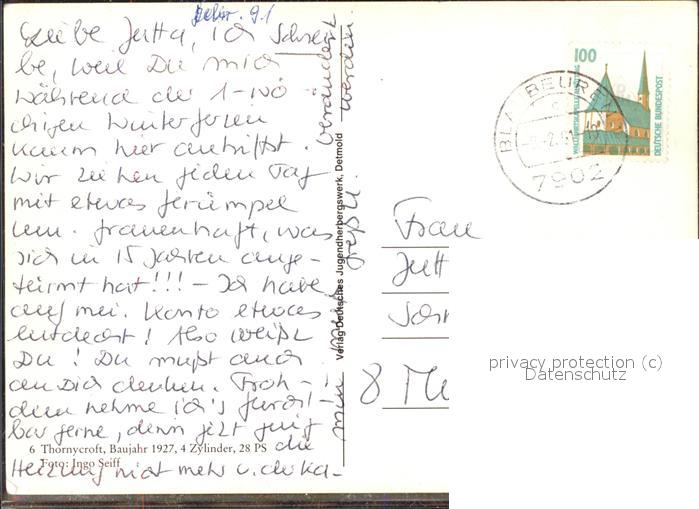 9.1
Liebe Jutta, ich schrei-
be, weil Du mich
während der 1-wö-
chigen Winterferien
kaum hier antriffst.
Wir ziehen jeden Tag
mit etwas Gerümpel
um. Grauenhaft, was
sich in 15 Jahren ange-
türmt hat!!! - Ich habe
auf mei. Konto etwas
entdeckt! Also weißt
Du! Du mußt auch
an Dich denken. Trotz-
dem nehme ich's furcht-
bar gerne, denn jetzt ging
die
Heizung nicht mehr u. die
6 Thornycroft, Baujahr 1927, 4 Zylinder, 28 PS
Foto: Ingo Seiff
verändert
werden.
Verlag Deutsches Jugendherbergswerk, Detmold
100
WALLFAHRTSKAPELLE ALTÖTTING
DEUTSCHE BUNDESPOST
BLAUBEUREN
7902
Frau
Jutt
8 M
privacy protection (c)
Datenschutz